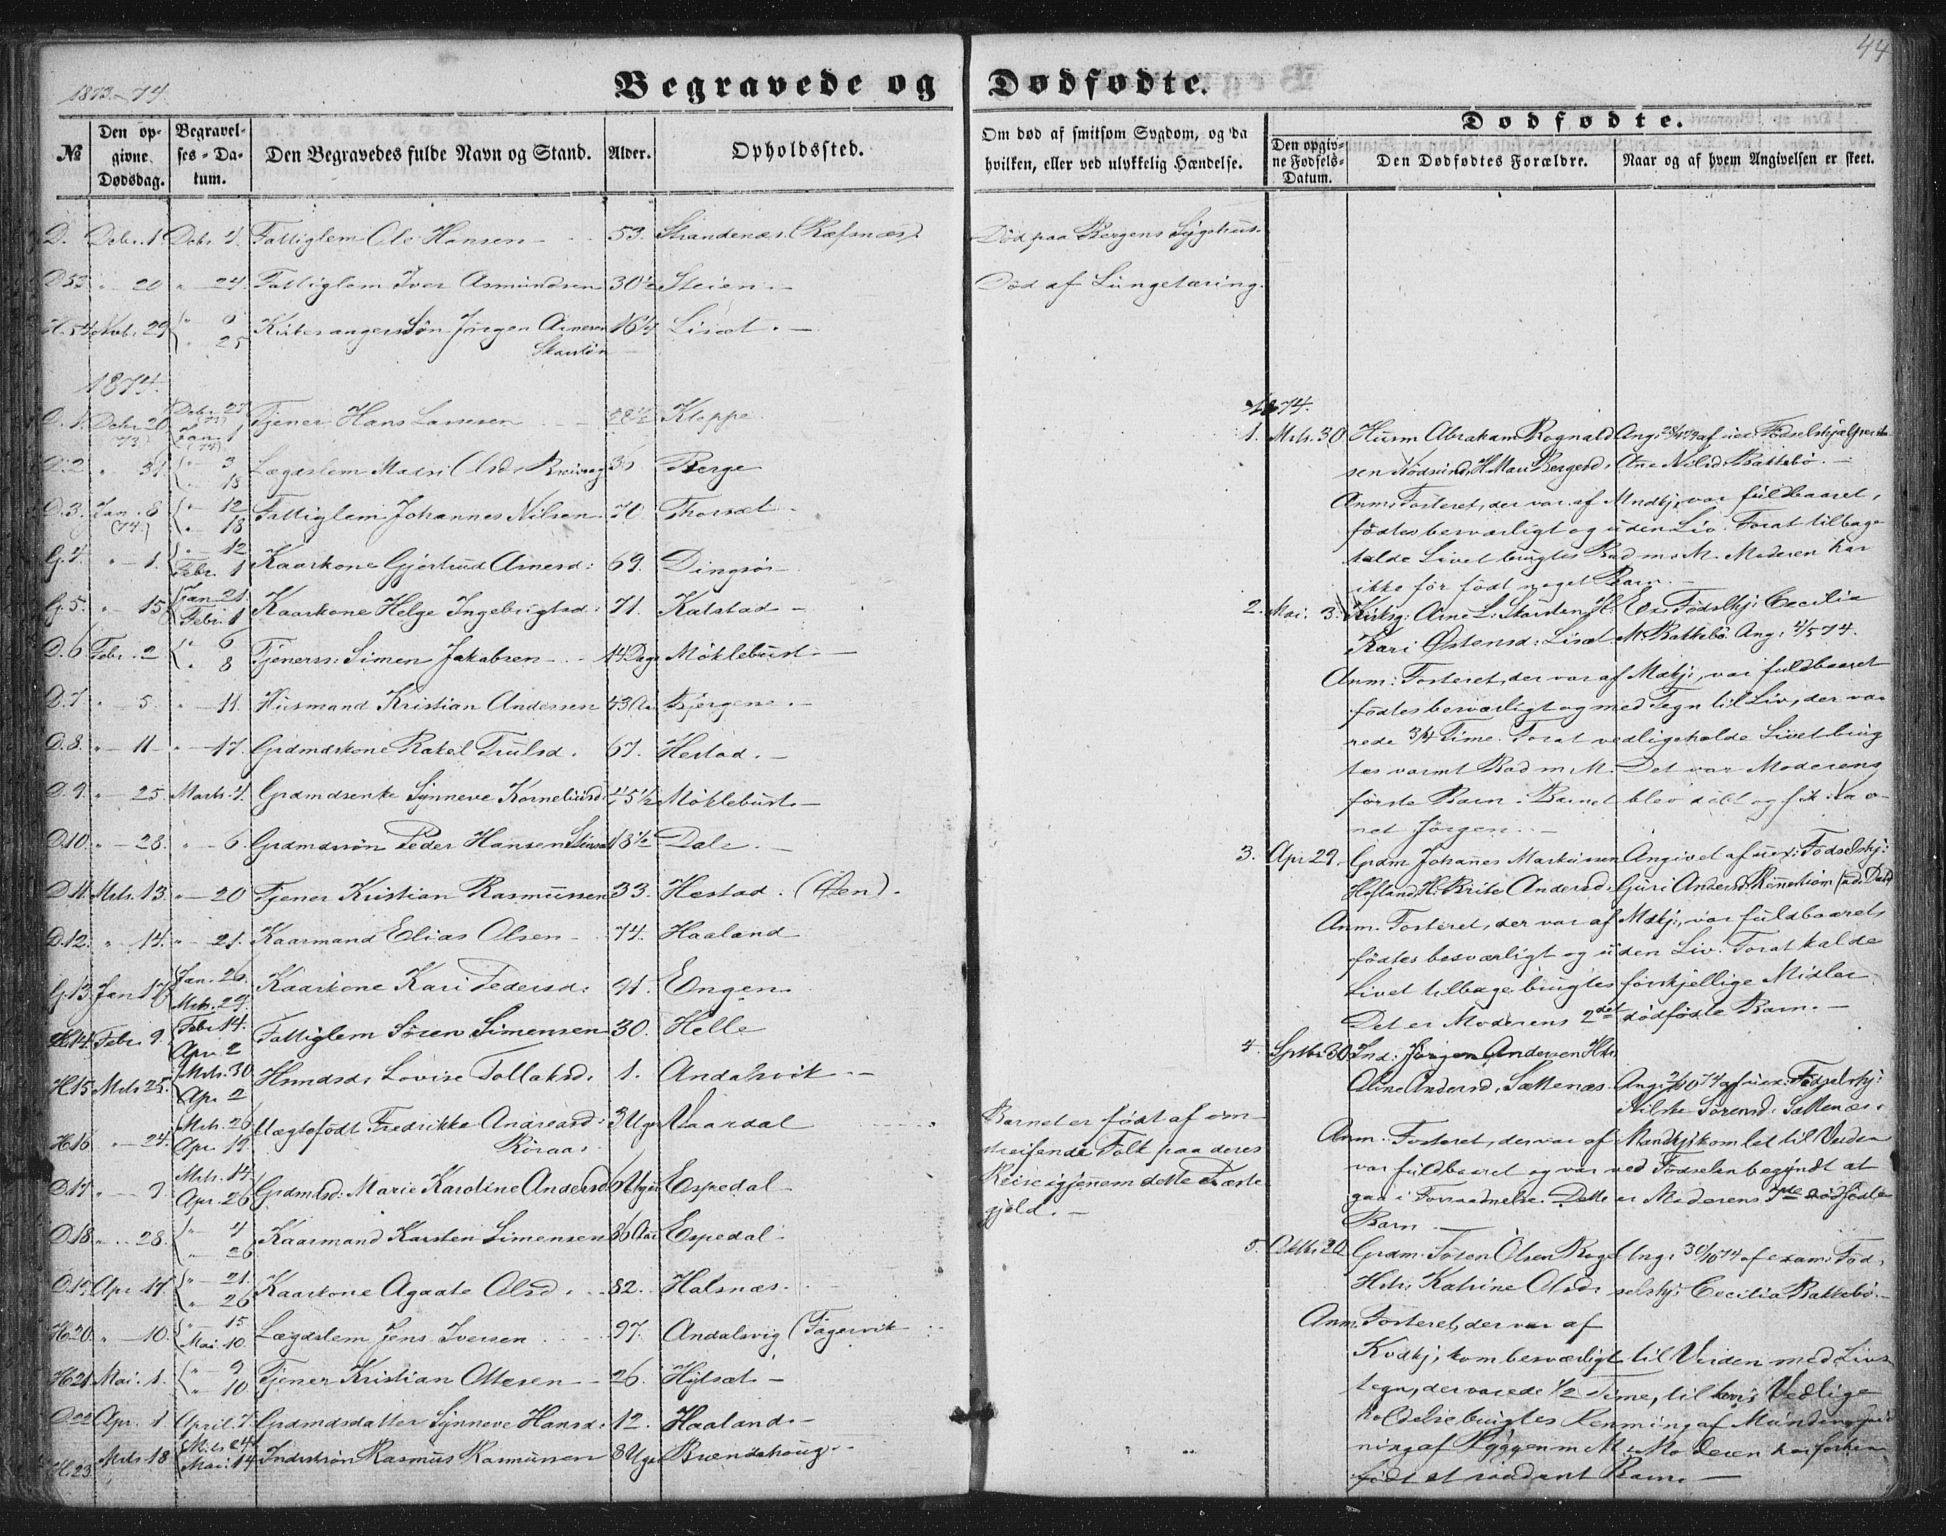 44
1873-74.
Begravede og Dødfødte.
№
Den opgivne Dødsdag.
Begravelses-Datum.
Den Begravedes fulde Navn og Stand.
Alder.
Opholdssted.
Om død af smitsom Sygdom, og da hvilken, eller ved ulykkelig Hændelse.
Dødfødte.
Den opgivne Fødsels-Datum.
Den Dødfødtes Forældre.
Naar og af hvem Angivelsen er skeet.
D. Debr. 1 Debr 4. Fattiglem Ole Hansen 53. Strandenæs (Rafsnæs). Død paa Bergens Sygehus.
D53 " 20 " 24 Fattiglem Iver Asmundsen 30½ Steien. Død af Lungetæring.
H.54 Nvbr. 29 " 6 " 25 Kirkesangers Søn Jørgen Arnesen Skarsten 16¼ Liset.
1874.
D.1. Debr. 20 (73) Debr. 27 (73) Jan. 1 (74) Tjener Hans Larsen 28½ Kleppe
D.2. " 31 " 3 " 18 Lægdslem Mari Olsd. Breivaag 36 Berge
D.3. Jan. 6 (74.) " 12 " 18 Fattiglem Johannes Nilsen 70. Thorsæt.
G.4. " 1. " 12 Febr. 1 Kaarkone Gjertrud Arnesd: 69. Dingsør
G.5. " 15 Jan. 21 Febr. 1 Kaarkone Helge Ingebrigtsd: 71. Kalstad
D.6 Febr. 2 " 6 " 8 Tjeners: Simen Jakobsen 14 Dage Møklebust.
D.7 " 5. " 11. Husmand Kristian Andersen 43 Aa Bjergene.
D.8. " 11 " 17. Grdmdskone Rakel Trulsd. 67. Hestad.
D.9. " 25. Marts. 4. Grdmdsenke Synneve Korneliusd: 45½ Møklebust.
D10. " 28. " 6. Grdmdssøn Peder Hansen 18½ Dale.
D.11. Mrts. 13. " 20 Tjener Kristian Rasmussen 33. Hestad. (Øen).
D.12. " 14. " 21. Kaarmand Elias Olsen 74. Haaland
G.13. Jan 17 Jan. 26. Mrts. 29. Kaarkone Kari Pedersd: 91. Engen
H.14. Febr. 9. Febr 14. Apr. 2 Fattiglem Søren Simensen 30. Helle
H.15 Mrts 25. Mrts. 30 Apr. 2 Hsmdsd. Lovise Tollaksd. 1. Andalsvik
H16. " 24. Mrts. 26 Apr. 19 Uægtefødt Fredrikke Andreasd: Röraas 3 Uger Vaardal
Barnet er født af om-
streifende Folk paa deres
Reise igjennem dette Præste
gjeld.
D.17 " 9. Mrts. 14 Apr. 26 Grdmdsd: Marie Karoline Andersd 6 Uger Espedal
D.18. " 28. " 4 " 26 Kaarmand Karsten Simensen 86 Aar Espedal
D.19. Apr. 17. " 21. " 26 Kaarkone Agaate Olsd. 82. Halsnæs.
H20 " 10. " 15 Mai. 10 Lægdslem Jens Iversen 97. Andalsvig (Fagervik
H21 Mai. 1. " 9 " 10 Tjener Kristian Ottesen 26. Hylsæt
D22 Apr. 1. April 7. Grdmdsdatter Synneve Hansd: 12. Haaland.
H.23. Mrts 18 Mrts 24 Mai. 14 Inderstsøn Rasmus Rasmussen 8 Uger Brændehoug. " "
1874.
1. Mrts. 30 Husm Abraham Rognald Ang. af uex: Fødselshjælperske
sen H. Mari Bergesd: Ane Nilsd: Bakkebö.
Anm: Fosteret, der var af Mndkj, var fuldbaaret,
fødtes besværligt og uden Liv. For at tilbage
kalde Livet brugtes Bad m. M. Moderen har
ikke før født noget Barn.
2. Mai. 3. Kirksg: Arne L: Skarsten H. Ex: Fødselhj: Cecilia
Kari Østensd: Liset M: Bakkebö. Ang: 4/5 74.
Anm: Fosteret, der var af Mdkj:, var fuldbaaret
fødtes besværligt og med Tegn til Liv, der va-
rede 3/4 Time. For at vedligeholde Livet brug
tes varmt Bad m. M. Det var Moderens
første Barn: Barnet blev døbt og fik Nav-
net Jörgen.
3. Apr 29. Grdm Johannes Markussen Angivet af uex: Fødselshj:
Hofland H: Brite Andersd: Guri Andersd:
Anm. Fosteret, der var af Mdkj:, var fuldbaaret
fødtes besværligt og uden Liv. For at kalde
Livet tilbage brugtes forskjellige Midler.
Det er Moderens 2det dødfødte Barn.
4. Sptbr 30 Ind: Jörgen Andersen Hstr
Oline Andersd. Sættenæs. Ang: 2/10 74 af uex: Fødselshj:
Nilske Sørensd: Sættenæs.
Anm. Fosteret, der var af Mandkj: kom let til Verden
var fuldbaaret og var ved Fødselen begyndt at
gaa i Forraadnelse. Dette er Moderens 7de dødfødte
Barn
5. Oktbr 20 Grdm. Søren Olsen Ang: 30/10 74 af exam: Fød-
Hstr: Katrine Olsd: selshj: Cecilia Bakkebö.
Anm. Fosteret, der var af
Kvdkj:, kom besværligt til Verden med Livs
tegn, der varede 1/2 Time, til hvis Vedlige
holdelse brugtes Rensning af Munden
ning af Ryggen m M. Moderen har forhen
født et saadant Barn.